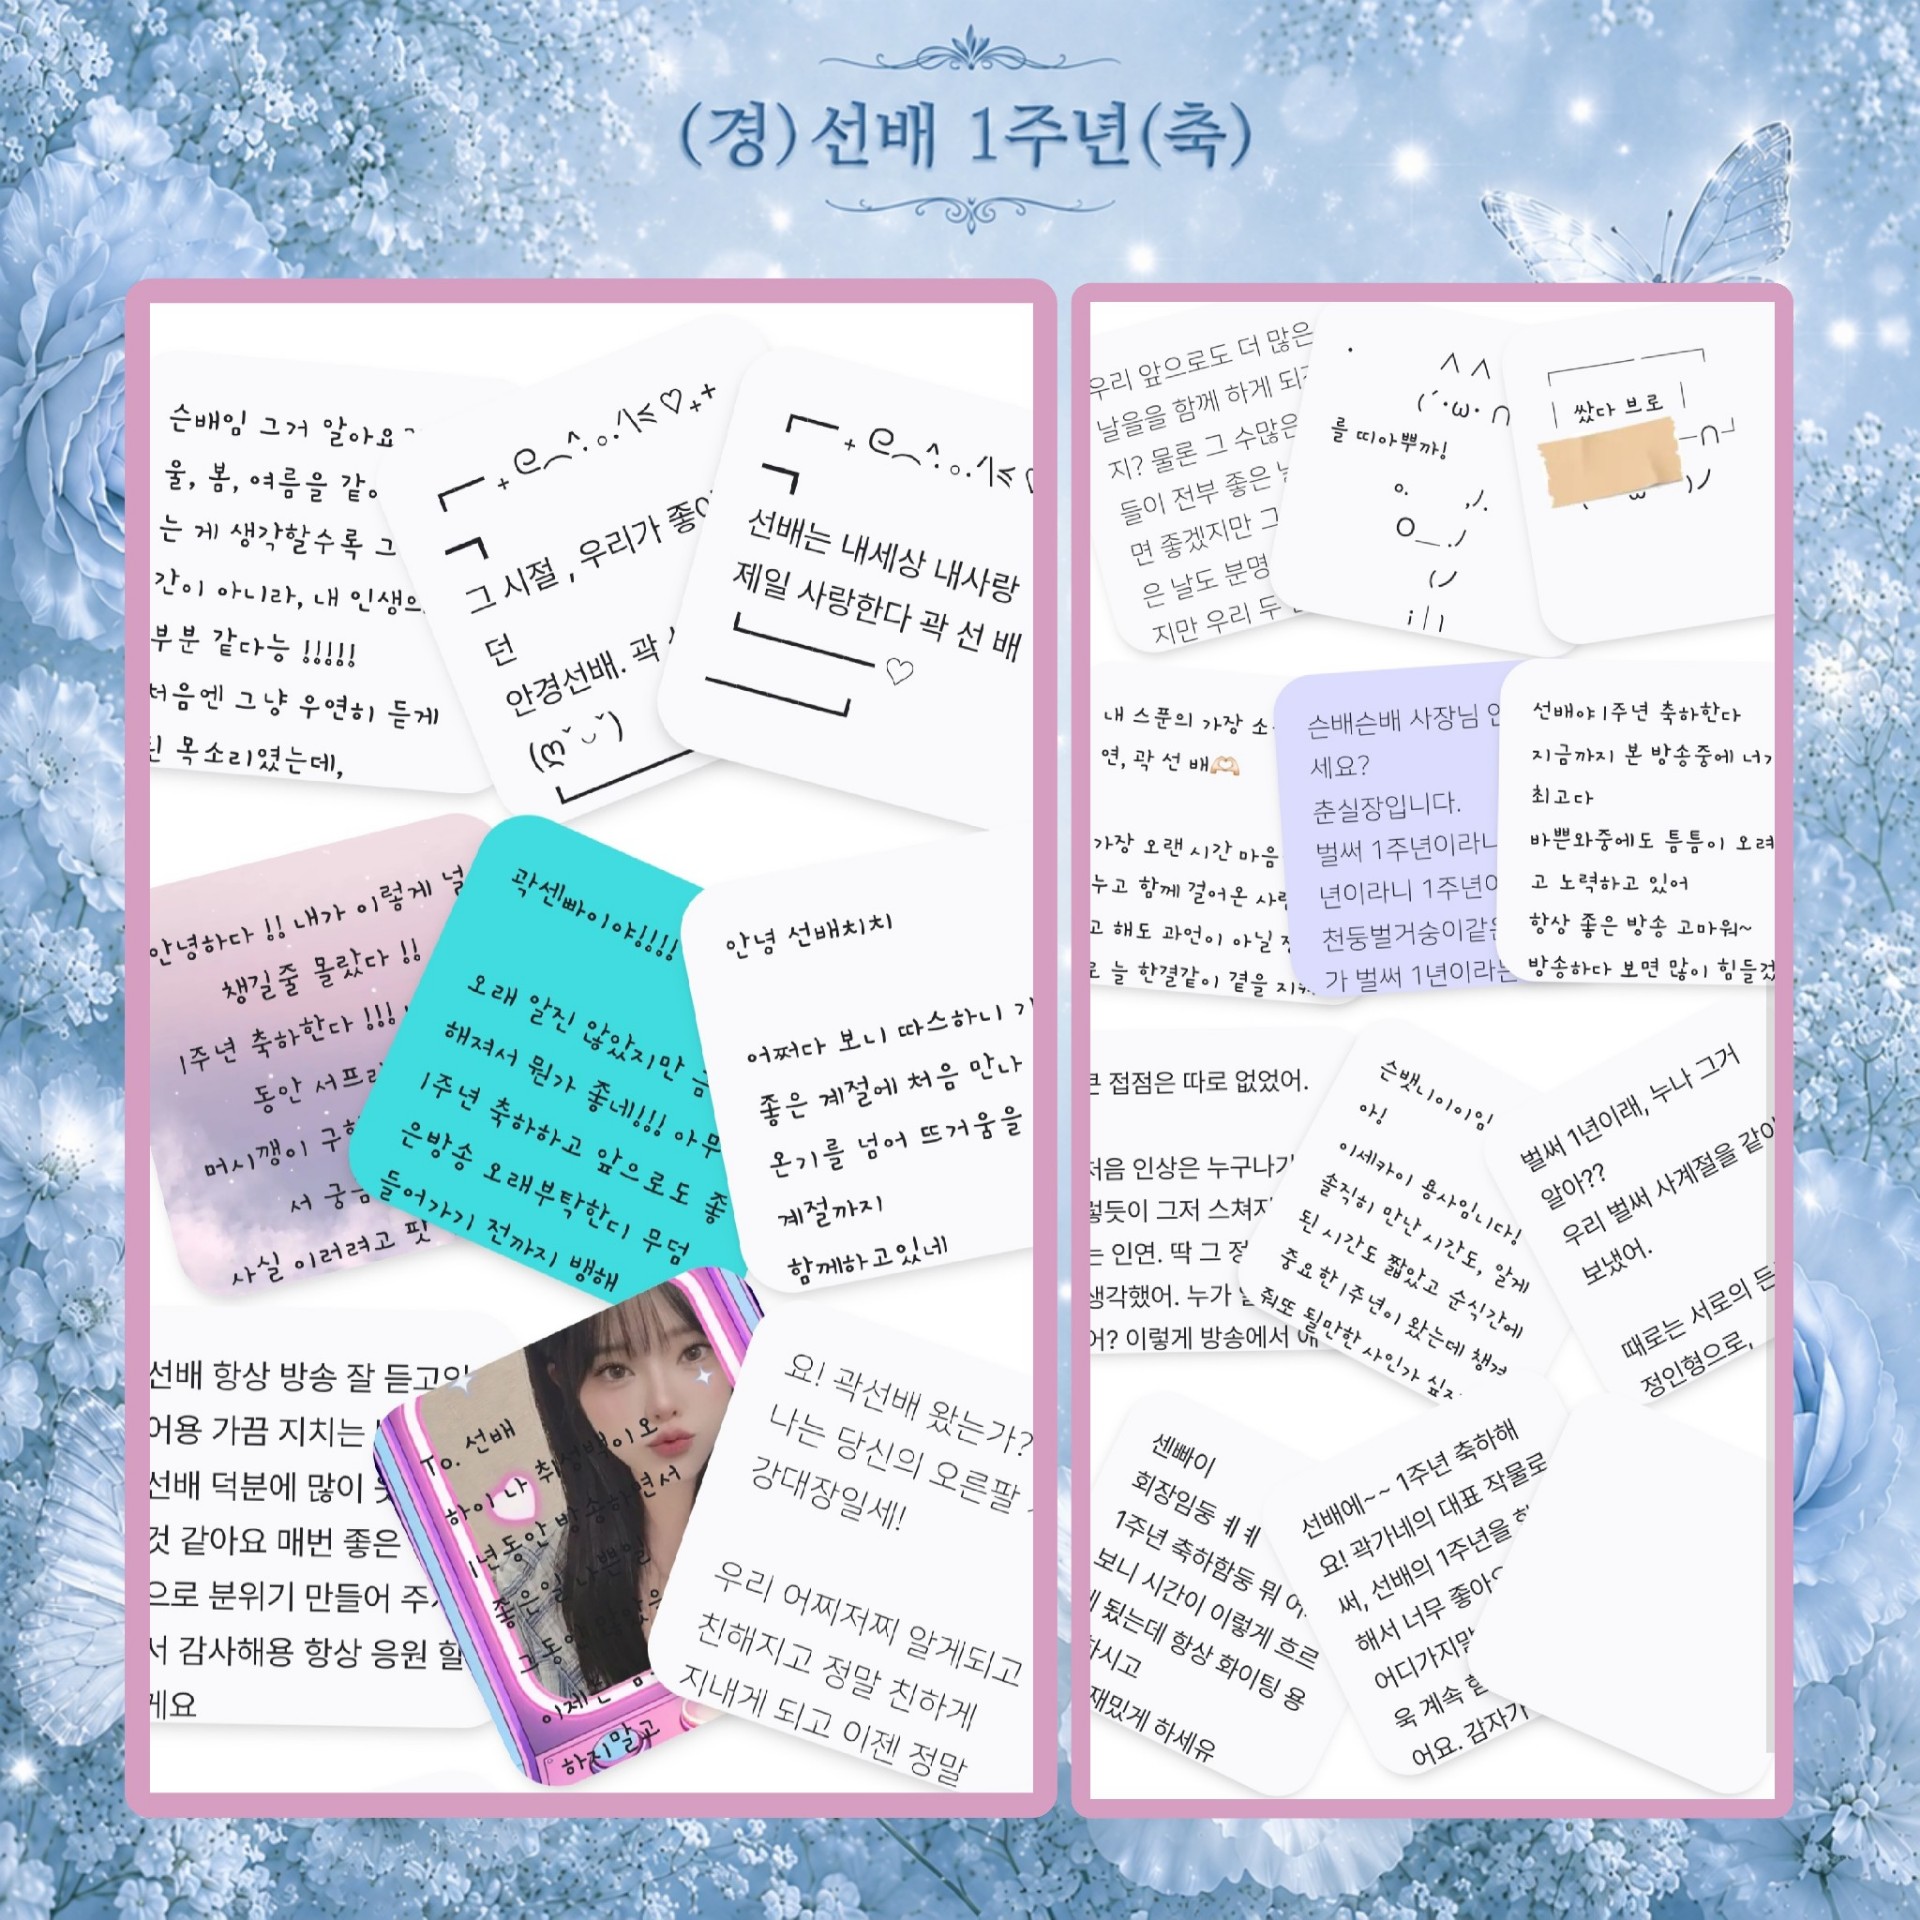 (경)선배 1주년(축)
슨배임 그거 알아요~
울, 봄, 여름을 같이
는 게 생각할수록 그
간이 아니라, 내 인생의
부분 같다능 !!!!!
처음엔 그냥 우연히 듣게
된 목소리였는데,
그 시절 , 우리가 좋아
던
안경선배. 곽
선배는 내세상 내사랑
제일 사랑한다 곽 선 배
안녕하다 !! 내가 이렇게 널
챙길줄 몰랐다 !!
1주년 축하한다 !!!
동안 서프라
머시깽이 구한
서 궁금
사실 이러려고 팟
곽센빠이야!!!!
오래 알진 않았지만
해져서 뭔가 좋네!!! 아무
1주년 축하하고 앞으로도 좋
은방송 오래부탁한디 무덤
들어가기 전까지 뱅해
안녕 선배치치
어쩌다 보니 따스하니
좋은 계절에 처음 만나
온기를 넘어 뜨거움을
계절까지
함께하고있네
선배 항상 방송 잘 듣고있
어용 가끔 지치는
선배 덕분에 많이
것 같아요 매번 좋은
으로 분위기 만들어 주
서 감사해용 항상 응원 할
게요
To. 선배
하이 나 취성백이오
1년동안 방송하면서
좋은일 나쁜일
그동안 많았
이제는
하지말고
요! 곽선배 왔는가?
나는 당신의 오른팔
강대장일세!
우리 어찌저찌 알게되고
친해지고 정말 친하게
지내게 되고 이젠 정말
우리 앞으로도 더 많은
날을을 함께 하게 되
지? 물론 그 수많은
들이 전부 좋은
면 좋겠지만 그
은 날도 분명
지만 우리 두
를 띠아뿌까!
쌌다 브로
내 스푼의 가장 소
연, 곽 선 배🫶🏻
가장 오랜 시간 마음
누고 함께 걸어온 사람
고 해도 과언이 아닐
로 늘 한결같이 곁을 지켜
슨배슨배 사장님 안
세요?
춘실장입니다.
벌써 1주년이라니
년이라니 1주년이
천둥벌거숭이같은
가 벌써 1년이라는
선배야 1주년 축하한다
지금까지 본 방송중에 너가
최고다
바쁜와중에도 틈틈이 오려
고 노력하고 있어
항상 좋은 방송 고마워~
방송하다 보면 많이 힘들겠
큰 접점은 따로 없었어.
처음 인상은 누구나가
렇듯이 그저 스쳐지
는 인연. 딱 그 정
생각했어. 누가
어? 이렇게 방송에서
슨뱃니이이임
아!
이세카이 용사입니다!
솔직히 만난 시간도, 알게
된 시간도 짧았고 순식간에
중요한1주년이 왔는데 챙겨
줘또 될만한 사인가 싶지
벌써 1년이래, 누나 그거
알아??
우리 벌써 사계절을 같이
보냈어.
때로는 서로의 든
정인형으로,
센빠이
회장임둥 ㅔㅔ
1주년 축하함둥 뭐 어
보니 시간이 이렇게 흐르
게 됬는데 항상 화이팅 용
하시고
재밌게 하세유
선배에~~ 1주년 축하해
요! 곽가네의 대표 작물로
써, 선배의 1주년을
해서 너무 좋아
어디가지말
욱 계속
어요. 감자가